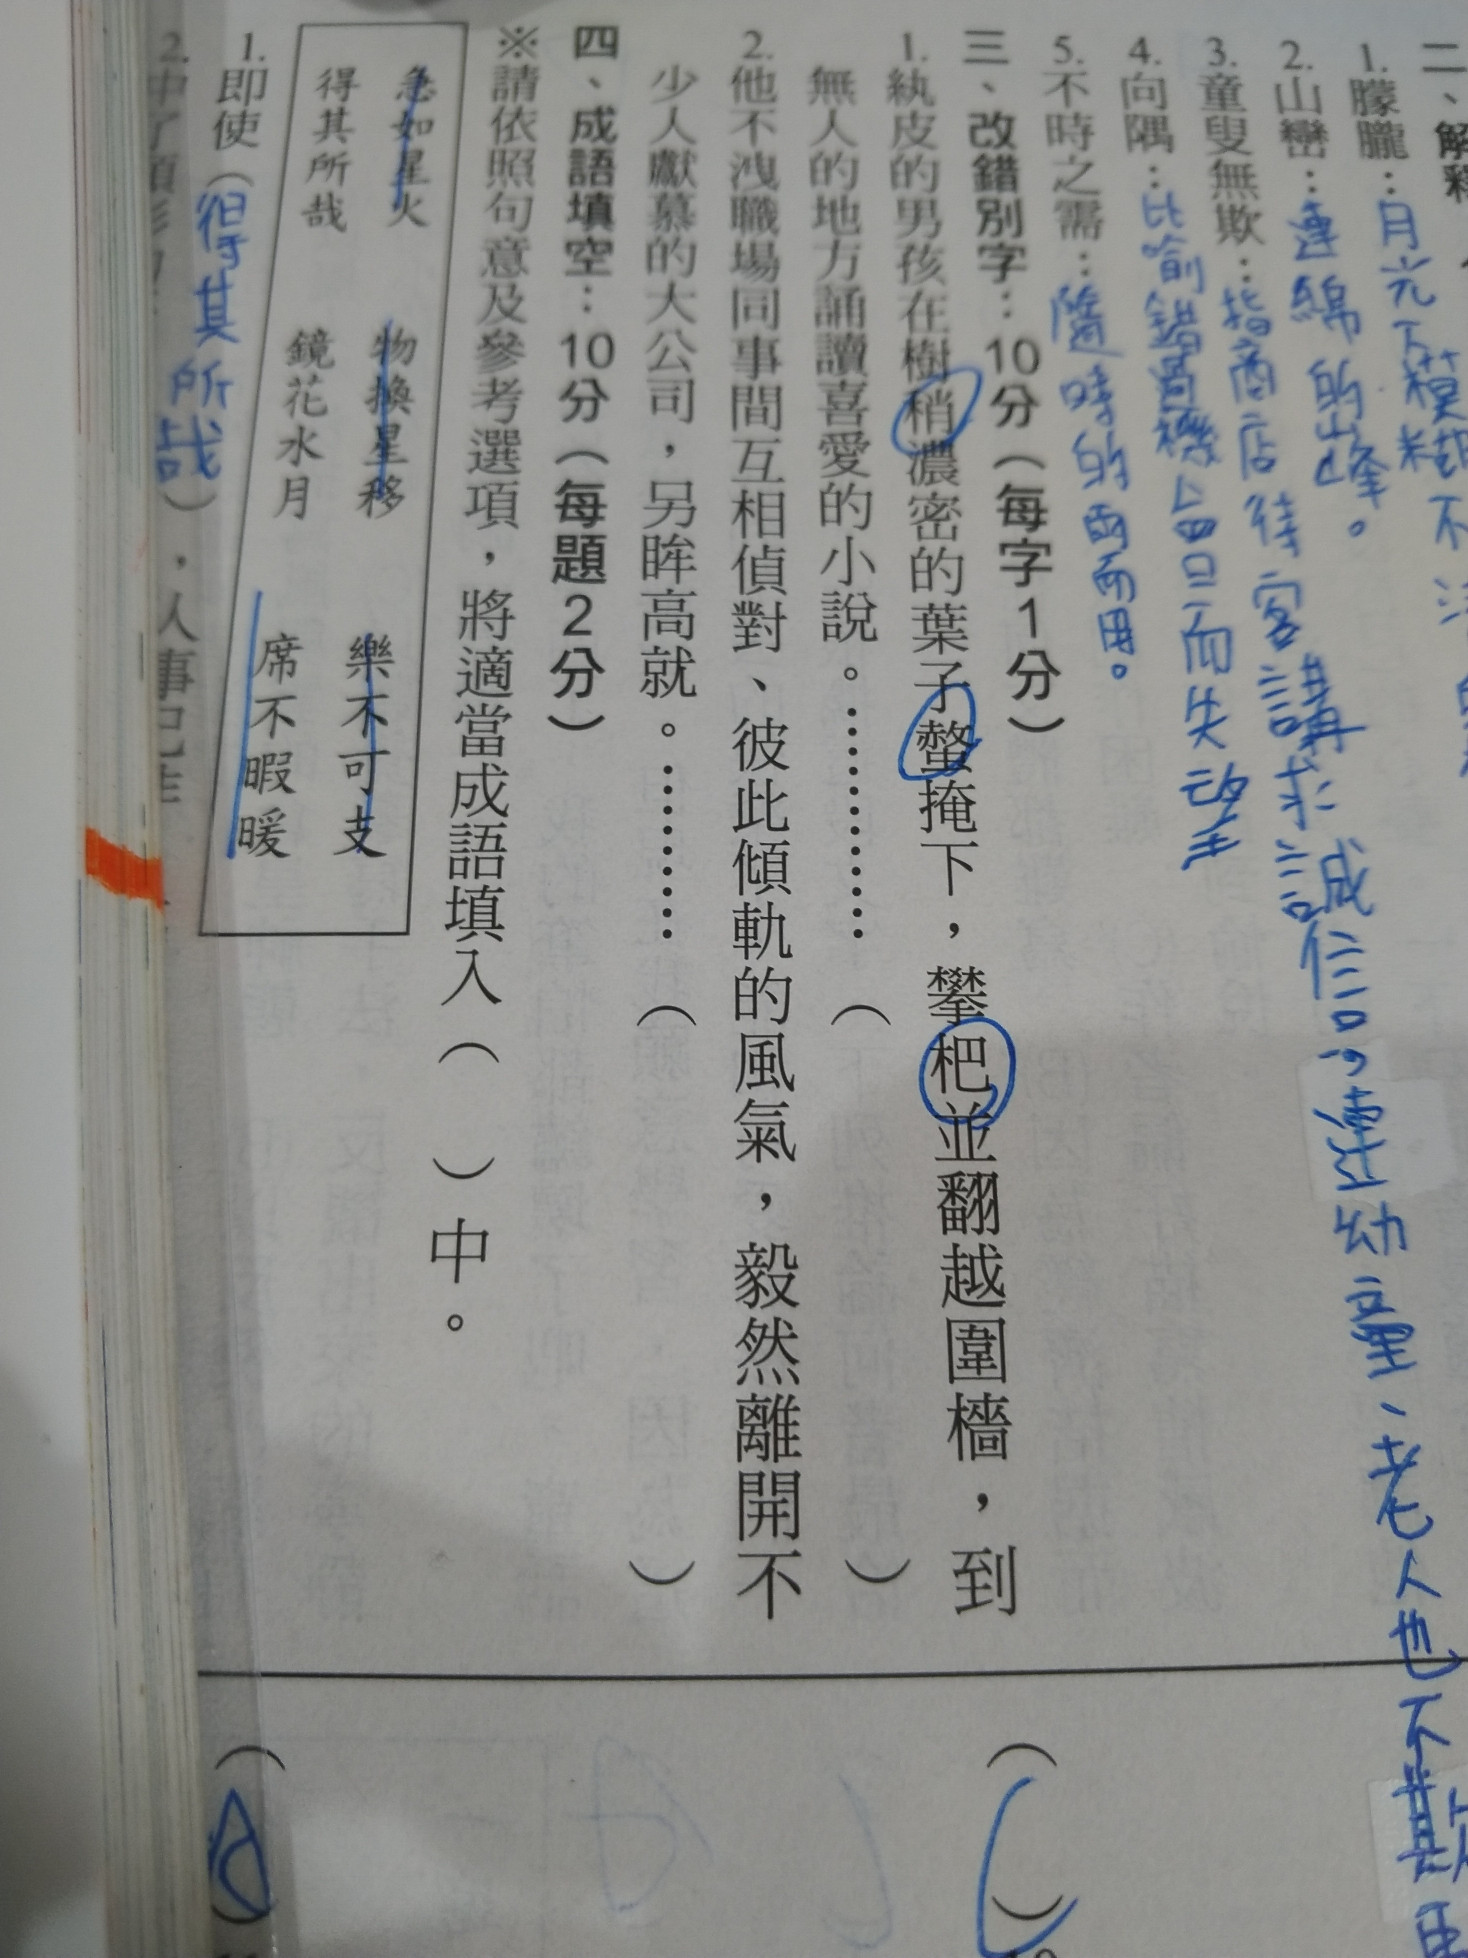 二、解釋
1. 朦朧：月光下模糊不
2. 山巒：連綿的山峰。
3. 童叟無欺：指商店待客講求誠信,連幼童、老人也不欺
4. 向隅：比喻錯過機會而失望
5. 不時之需：隨時的需要用。
三、改錯別字：10分（每字1分）
1. 執皮的男孩在樹稍濃密的葉子螫掩下，攀杷並翻越圍檣，到
無人的地方誦讀喜愛的小說。…………（　）
2. 他不洩職場同事間互相偵對、彼此傾軌的風氣，毅然離開不
少人獻慕的大公司，另眸高就。…………（　）
四、成語填空：10分（每題2分）
※請依照句意及參考選項，將適當成語填入（　）中。
急如星火　物換星移　樂不可支
得其所哉　鏡花水月　席不暇暖
1. 即使（得其所哉），人事已
2.